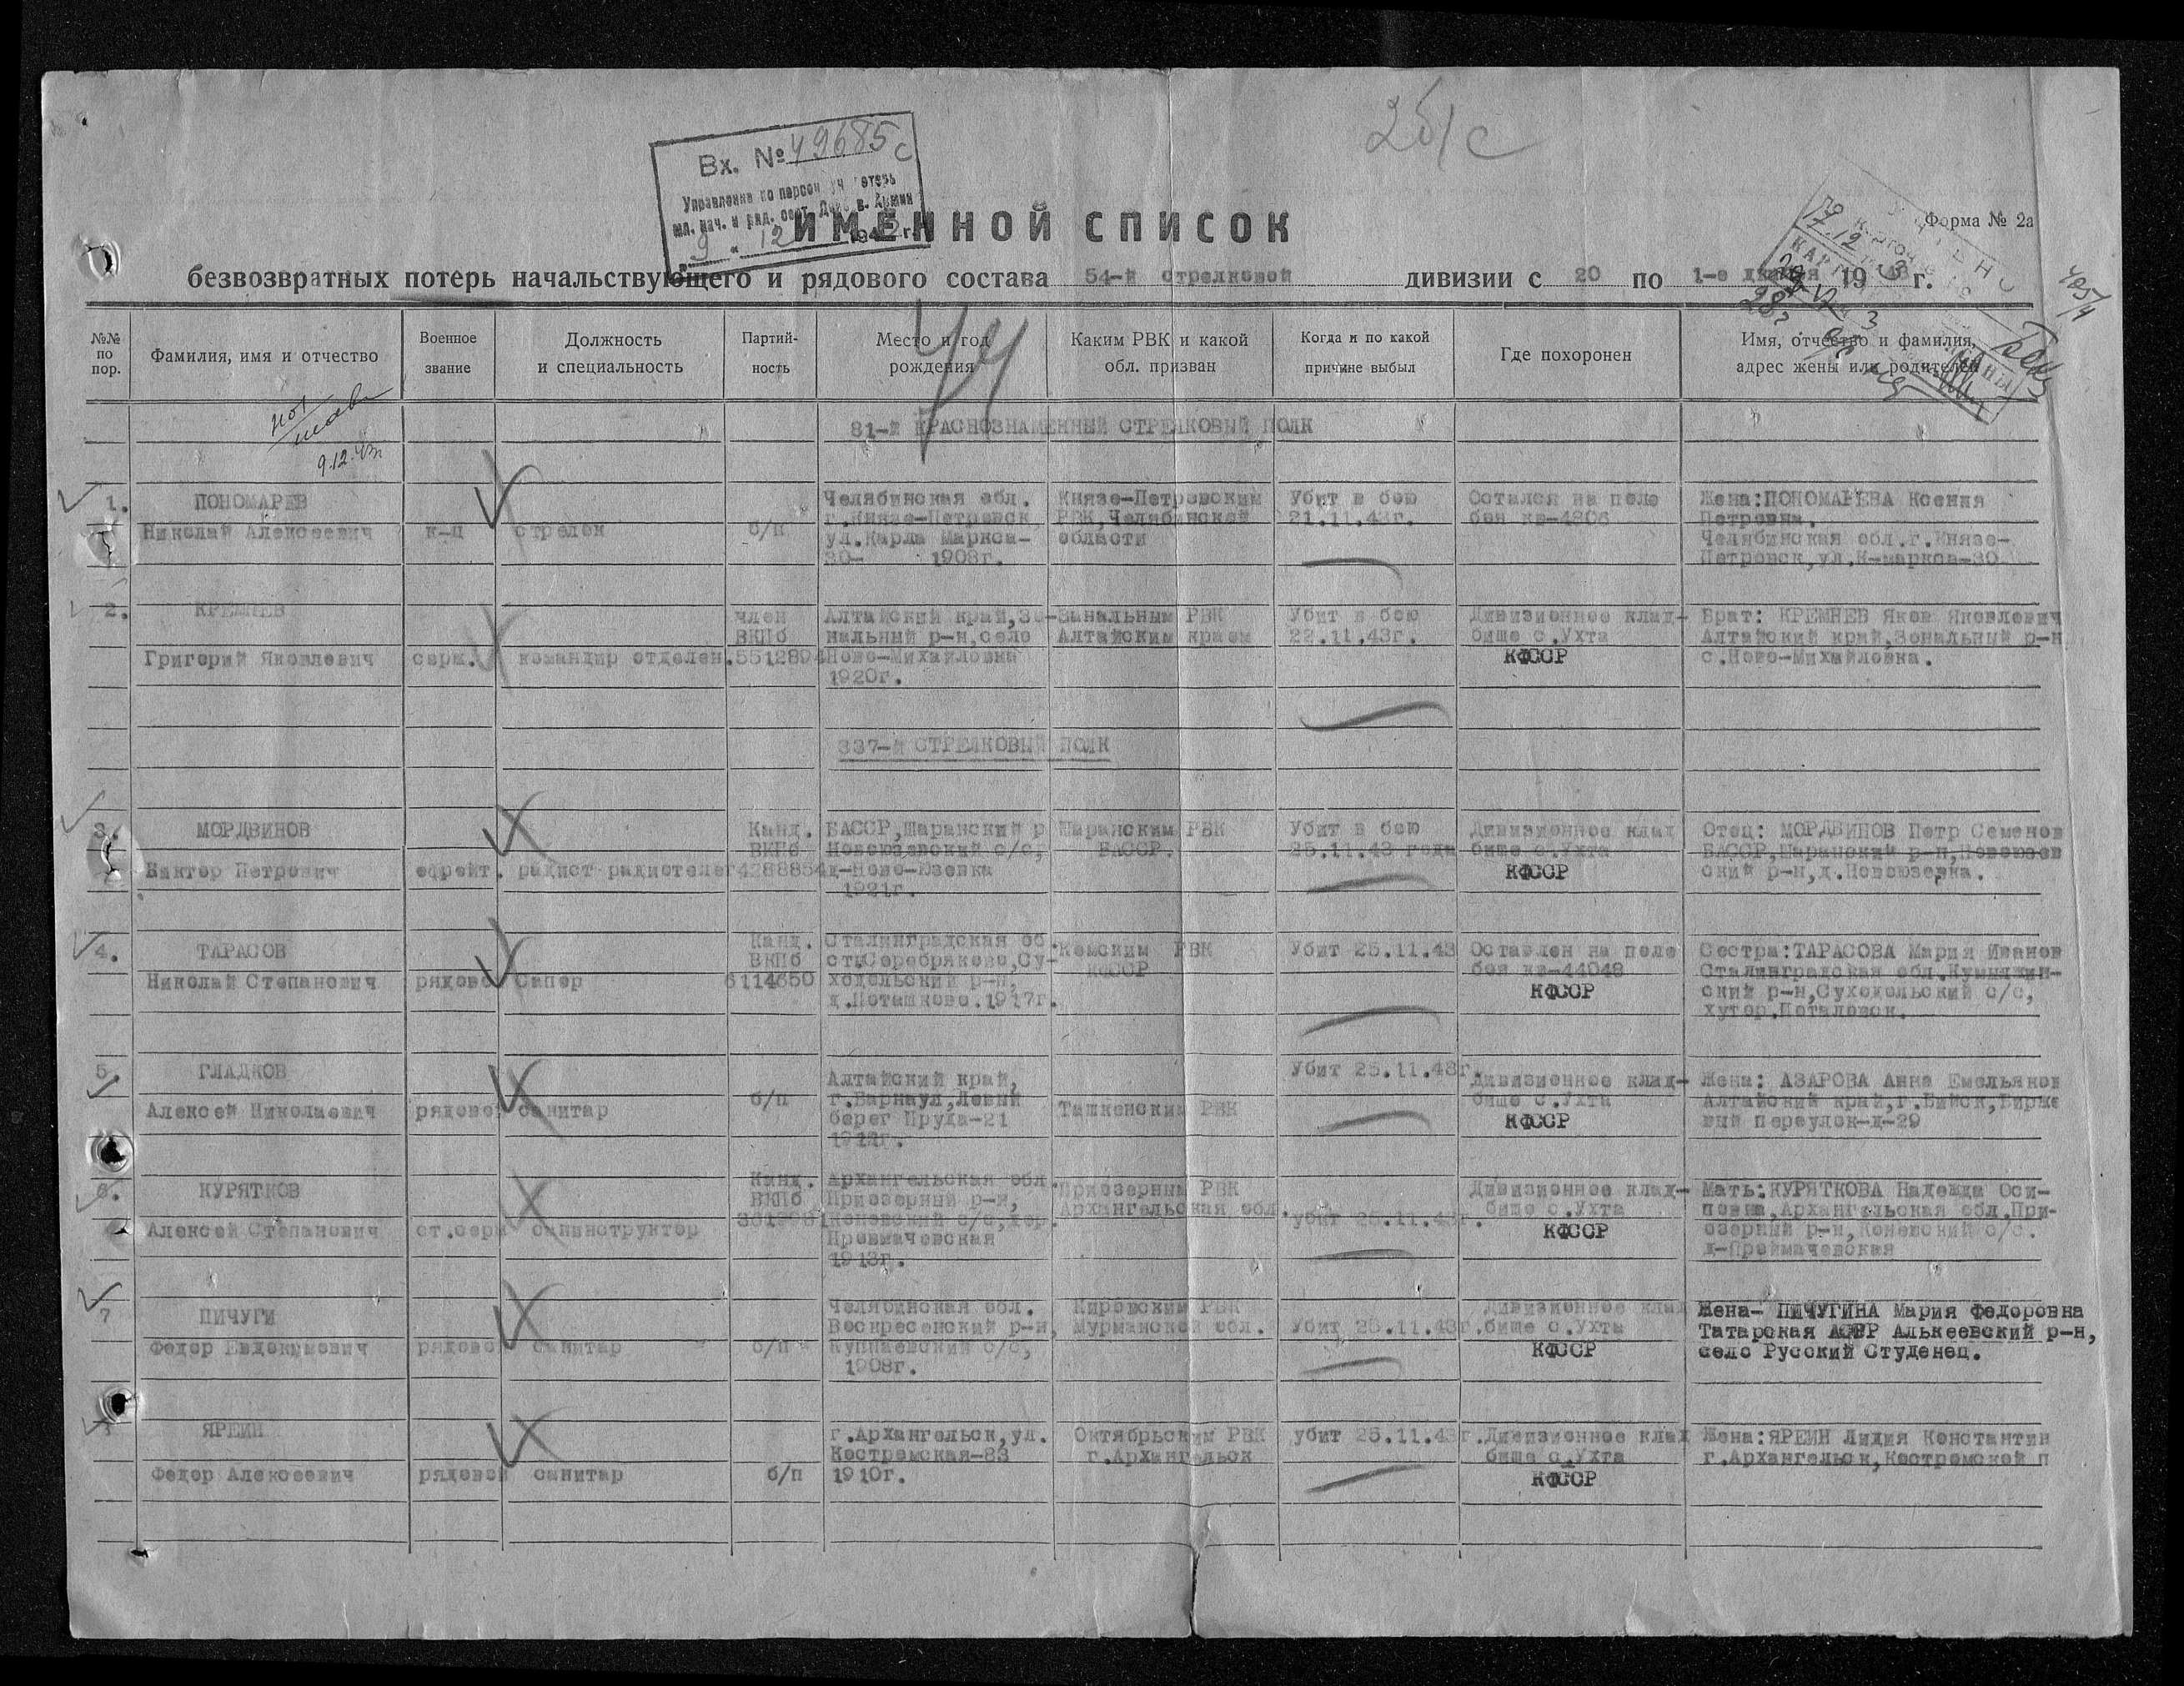 2б/с
Вх. № 49685с
Управление по персон уч потерь
мл. нач. и ряд. сост. Дейс в. Армии
9 " 12 194 г.
ИМЕННОЙ СПИСОК
Форма № 2а
безвозвратных потерь начальствующего и рядового состава 54-й стрелковой дивизии с 20 по 1-е 19 43 г.
№№ по пор.
Фамилия, имя и отчество
Военное звание
Должность и специальность
Партий- ность
Место и год рождения
Каким РВК и какой обл. призван
Когда и по какой причине выбыл
Где похоронен
Имя, отчество и фамилия, адрес жены или родителей
44
9.12.43
81-й КРАСНОЗНАМЕННЫЙ СТРЕЛКОВЫЙ ПОЛК
1. ПОНОМАРЕВ Челябинская обл. Князе-Петровским Убит в бою Остался на поле Жена:ПОНОМАРЕВА Ксения
г.Князе-Петровск РВК,Челябинской 21.11.43г. боя кв-4806 Петровна.
Николай Алексеевич к-ц стрелок б/п ул.Карла Маркса- области Челябинская обл.г.Князе-
30- 1908г. Петровск,ул.К-маркса-30
2. КРЕМНЕВ член Алтайский край,Зо- Зынальным РВК Убит в бою Дивизионное клад- Брат: КРЕМНЕВ Яков Яковлевич
ВКПб нальный р-н,село Алтайским краем 22.11.43г. бище с.Ухта Алтайский край,Зональный р-н
Григорий Яковлевич серж. командир отделен. 5512894 Ново-Михайловка КФССР с.Ново-Михайловка.
1920г.
337-й СТРЕЛКОВЫЙ ПОЛК
3. МОРДВИНОВ Канд. БАССР,Шаранский р Шаранским РВК Убит в бою Дивизионное клад Отец: МОРДВИНОВ Петр Семенов
ВКПб Новоюзевский с/с, БАССР. 25.11.43 года бище с.Ухта БАССР,Шаранский р-н,Новоюзев
Виктор Петрович ефрейт. радист радиотелег 4288854 д-Ново-Юзевка КФССР ский р-н,д.Новоюзевка.
1921г.
4. ТАРАСОВ Канд. Сталинградская об. Кемским РВК Убит 25.11.43 Оставлен на поле Сестра:ТАРАСОВА Мария Иванов
ВКПб ст.Серебряково,Су- КФССР боя кв-44048 Сталинградская обл.Кумылжин-
Николай Степанович рядово Сапер 6114650 ходольский р-н, КФССР ский р-н,Суходольский с/с,
д.Поташково.1917г. хутор.Поталовск.
5. ГЛАДКОВ Алтайский край, Убит 25.11.43г. Дивизионное клад- Жена: АЗАРОВА Анна Емельянов
б/п г.Барнаул,Левый бище с.Ухта Алтайский край,г.Бийск,Бирже
Алексей Николаевич рядовой санитар берег Пруда-21 Ташкенским РВК КФССР вый переулок-д-29
6. КУРЯТКОВ Канд. Архангельская обл. Приозерным РВК Дивизионное клад- Мать:КУРЯТКОВА Надежда Оси-
ВКПб Приозерный р-н, Архангельская обл. бище с.Ухта повна,Архангельская обл.При-
Алексей Степанович ст.серж санинструктор Коневский с/с, убит 25.11.43г. КФССР озерный р-н,Коневский с/с.
1913г. д-Преймачевская
7 ПИЧУГИ Челябинская обл. Кировским РВК Дивизионное клад Жена- ПИЧУГИНА Мария Федоровна
Воскресенский р-н, Мурманской обл. Убит 25.11.43г. бище с.Ухта Татарская АССР Алькеевский р-н,
Федор Евдокимович рядово санитар б/п с/с, КФССР село Русский Студенец.
1908г.
ЯРЕИН г.Архангельск,ул. Октябрьским РВК убит 25.11.43г. Дивизионное клад Жена:ЯРЕИН Лидия Константин
Костромская-83 г.Архангельск бище с.Ухта г.Архангельск,Костромской п
Федор Алексеевич рядовой санитар б/п 1910г. КФССР